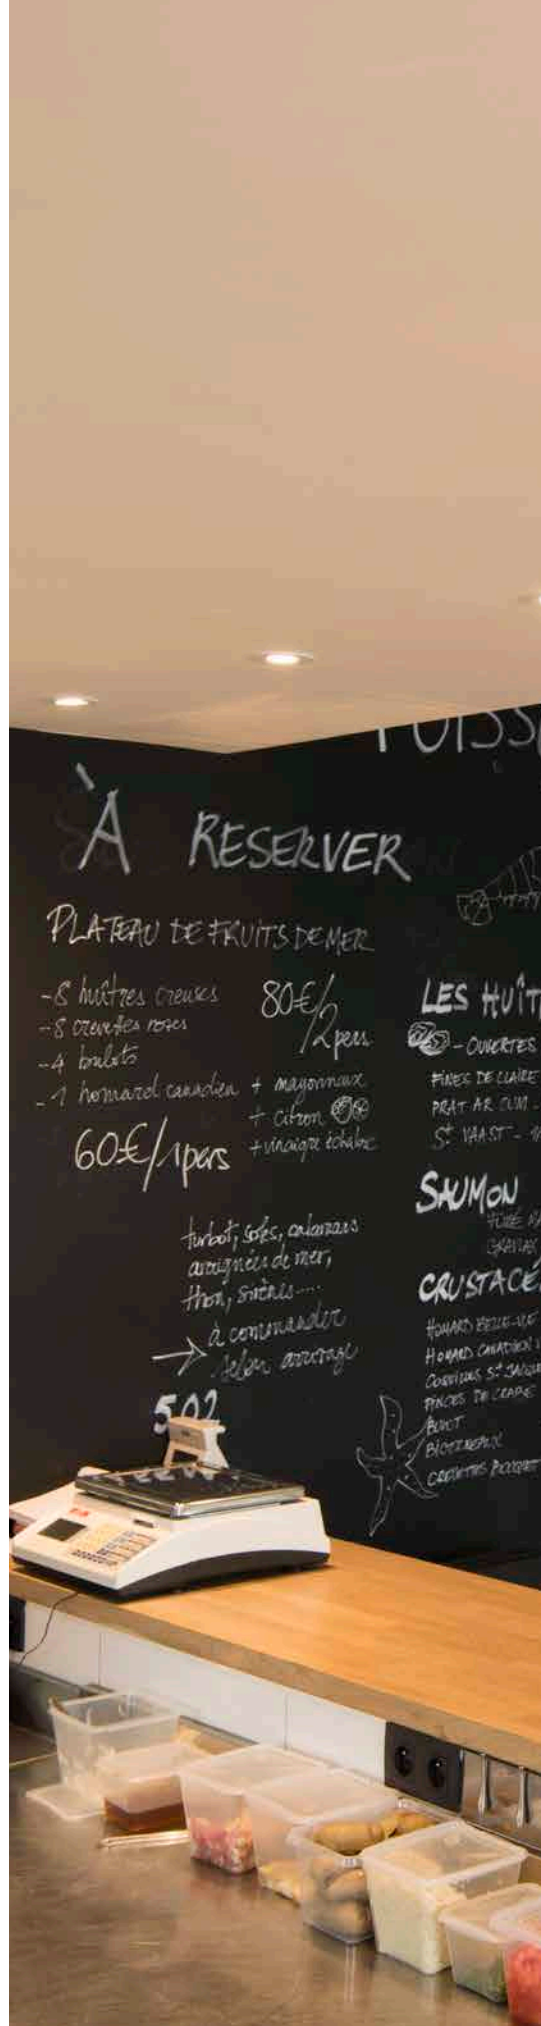 À RESERVER
PLATEAU DE FRUITS DE MER
-8 huîtres creuses
-8 crevettes roses
-4 bulots
-1 homard canadien
80€/2pers
+ mayonnaise
+ citron
+ vinaigre échalote
60€/1pers
turbot, soles, calamars
araignées de mer,
thon, sirènes....
→ à commander
selon arrivage
502
POISS
LES HUÎT
- OUVERTES
FINES DE CLAIRE
PRAT AR COUM -
ST VAAST -
SAUMON
FUMÉ
GRAVLAX
CRUSTACÉ
HOMARD BELLE-VUE
HOMARD CANADIEN
COQUILLES ST JACQUE
PINCES DE CRABE
BULOT
BIGORNEAUX
CREVETTES BOUQUET